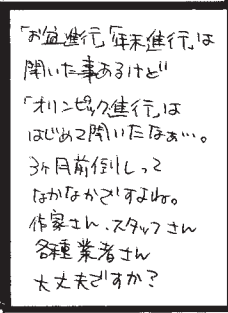 「お盆進行」「年末進行」は
聞いた事あるけど
「オリンピック進行」は
はじめて聞いたなぁ…。
3ヶ月前倒しって
なかなかですよね。
作家さん、スタッフさん
各種業者さん
大丈夫ですか？